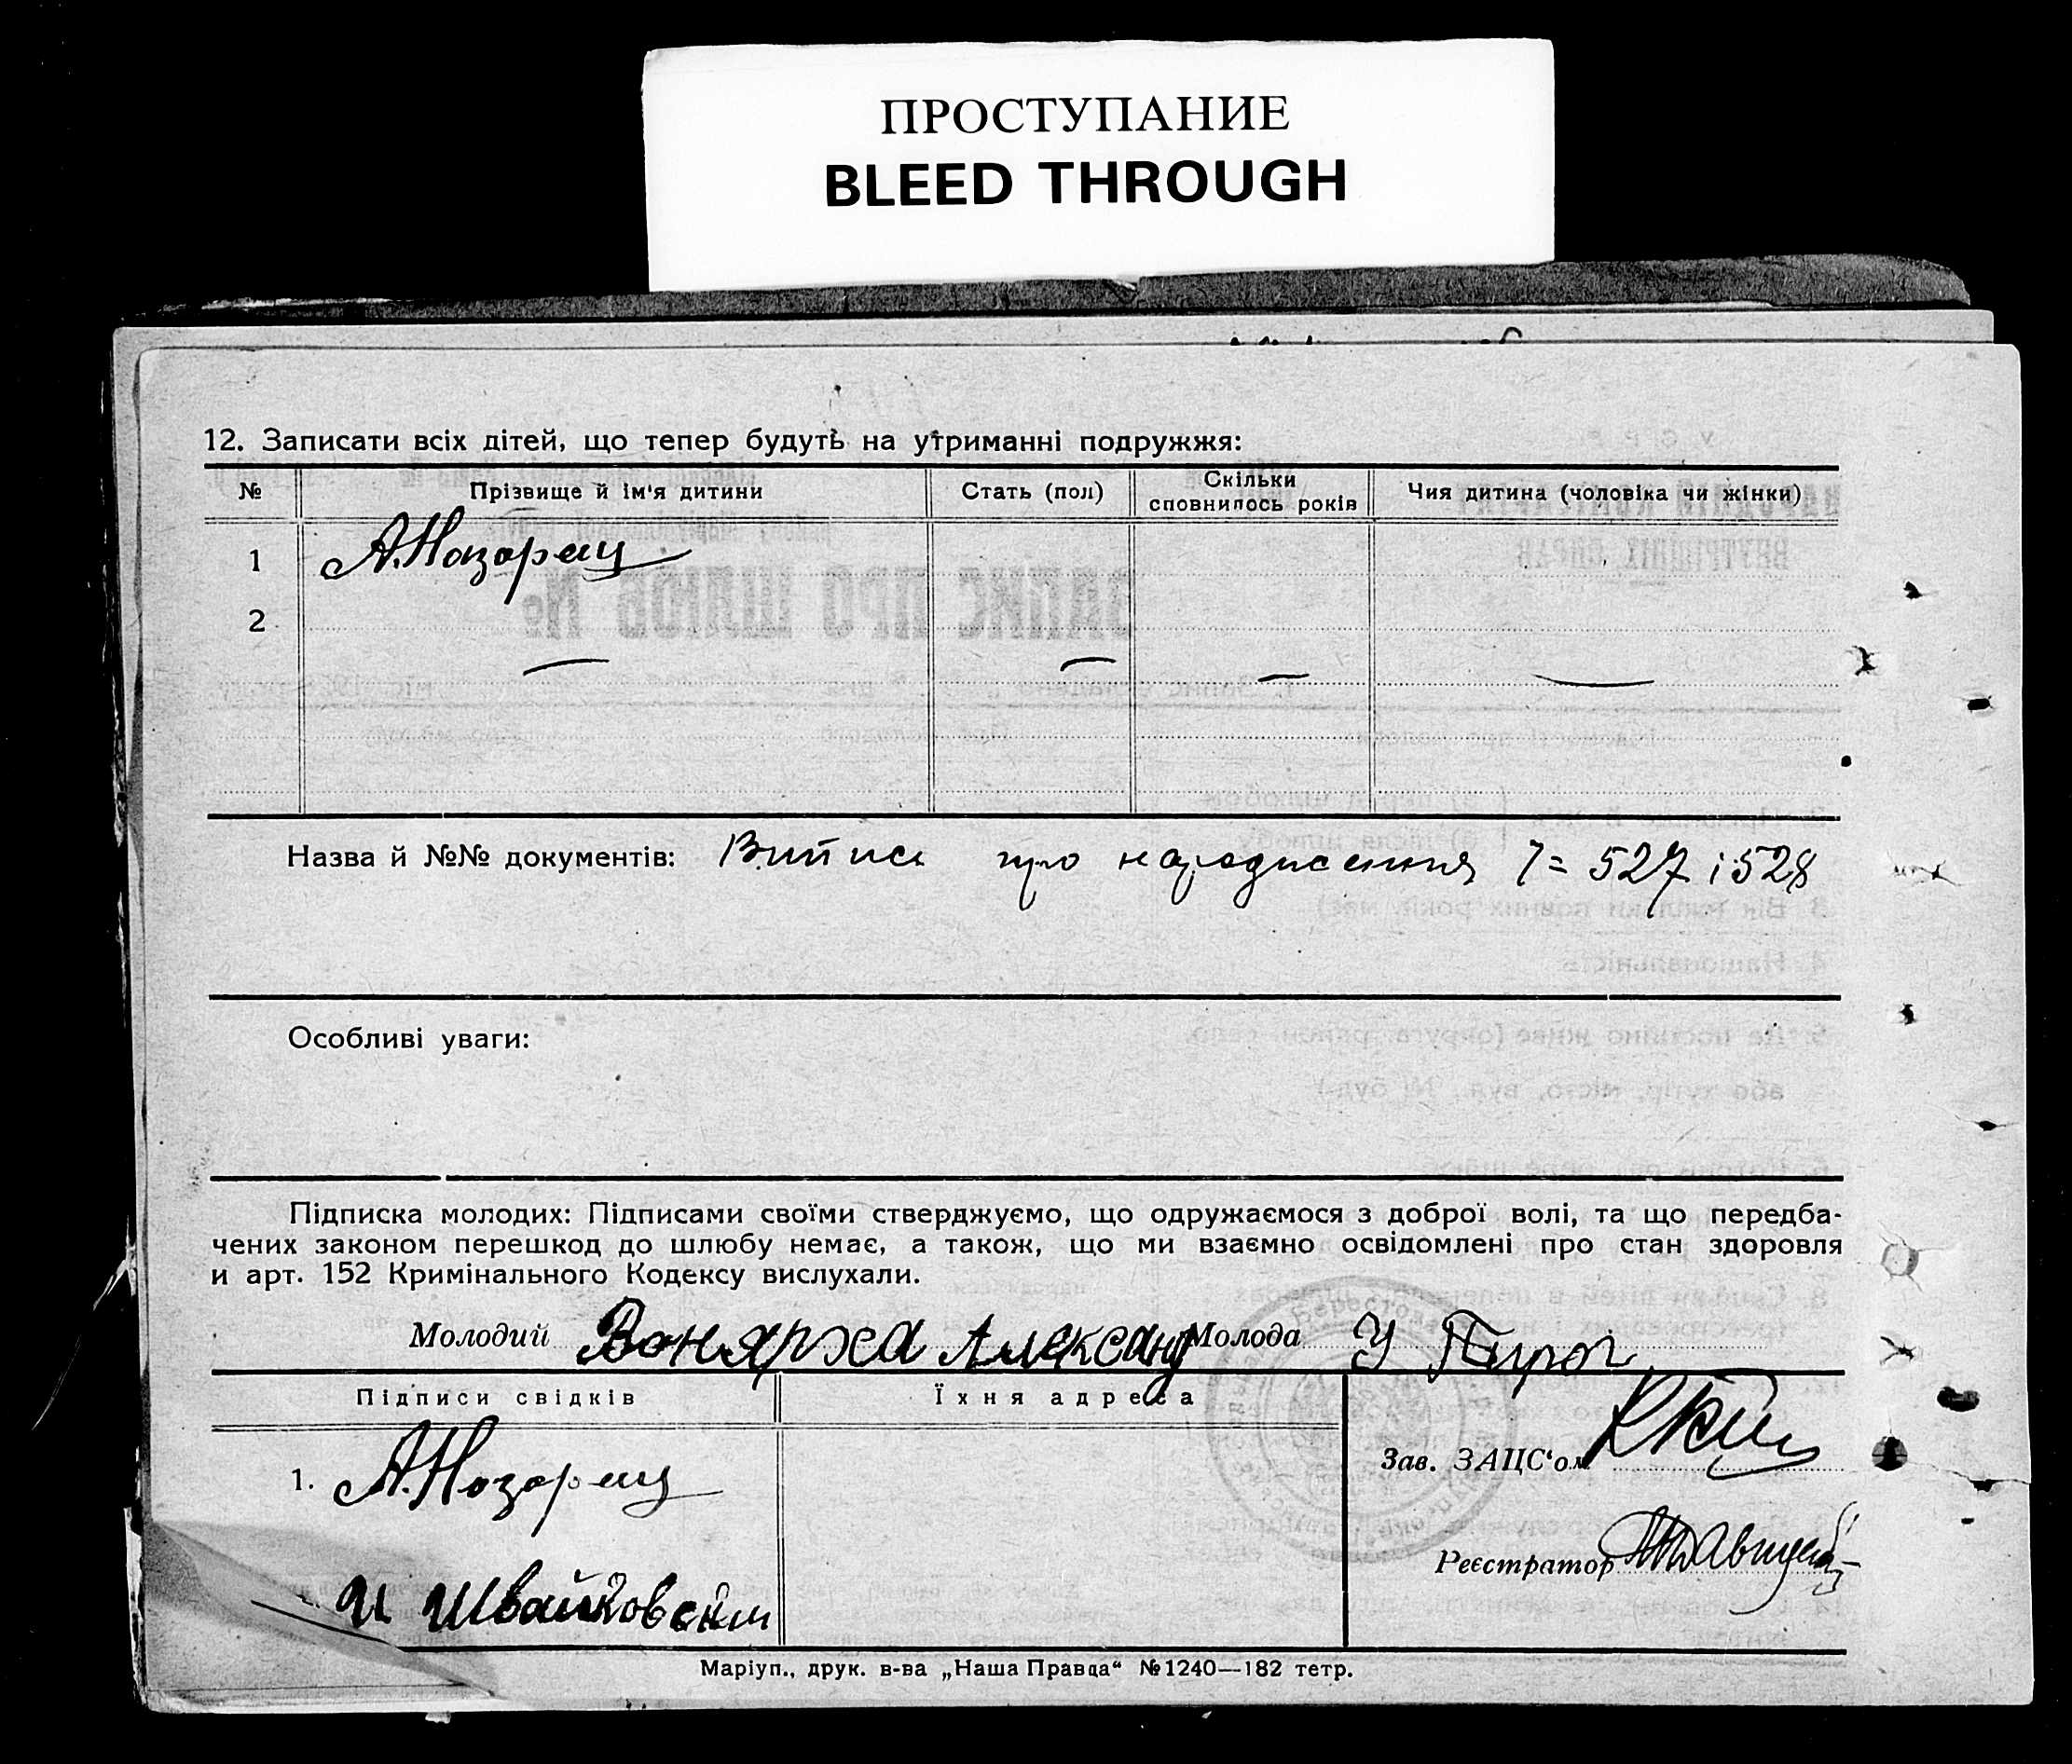 ПРОСТУПАНИЕ
BLEED THROUGH
12. Записати всіх дітей, що тепер будуть на утриманні подружжя:
№ Прізвище й ім'я дитини Стать (пол) Скільки сповнилось років Чия дитина (чоловіка чи жінки)
1 А.Назарец
2
Назва й №№ документів: Витиси про народження 7= 527 і 528
Особливі уваги:
Підписка молодих: Підписами своїми стверджуємо, що одружаємося з доброї волі, та що передба-
чених законом перешкод до шлюбу немає, а також, що ми взаємно освідомлені про стан здоровля
и арт. 152 Кримінального Кодексу вислухали.
Молодий Вонярха Александ Молода У Пирог
Підписи свідків Їхня адреса
Зав. ЗАЦС‘ом
1. А.Назарец
Реєстратор
И Швайковский
Маріуп., друк. в-ва „Наша Правда“ №1240—182 тетр.